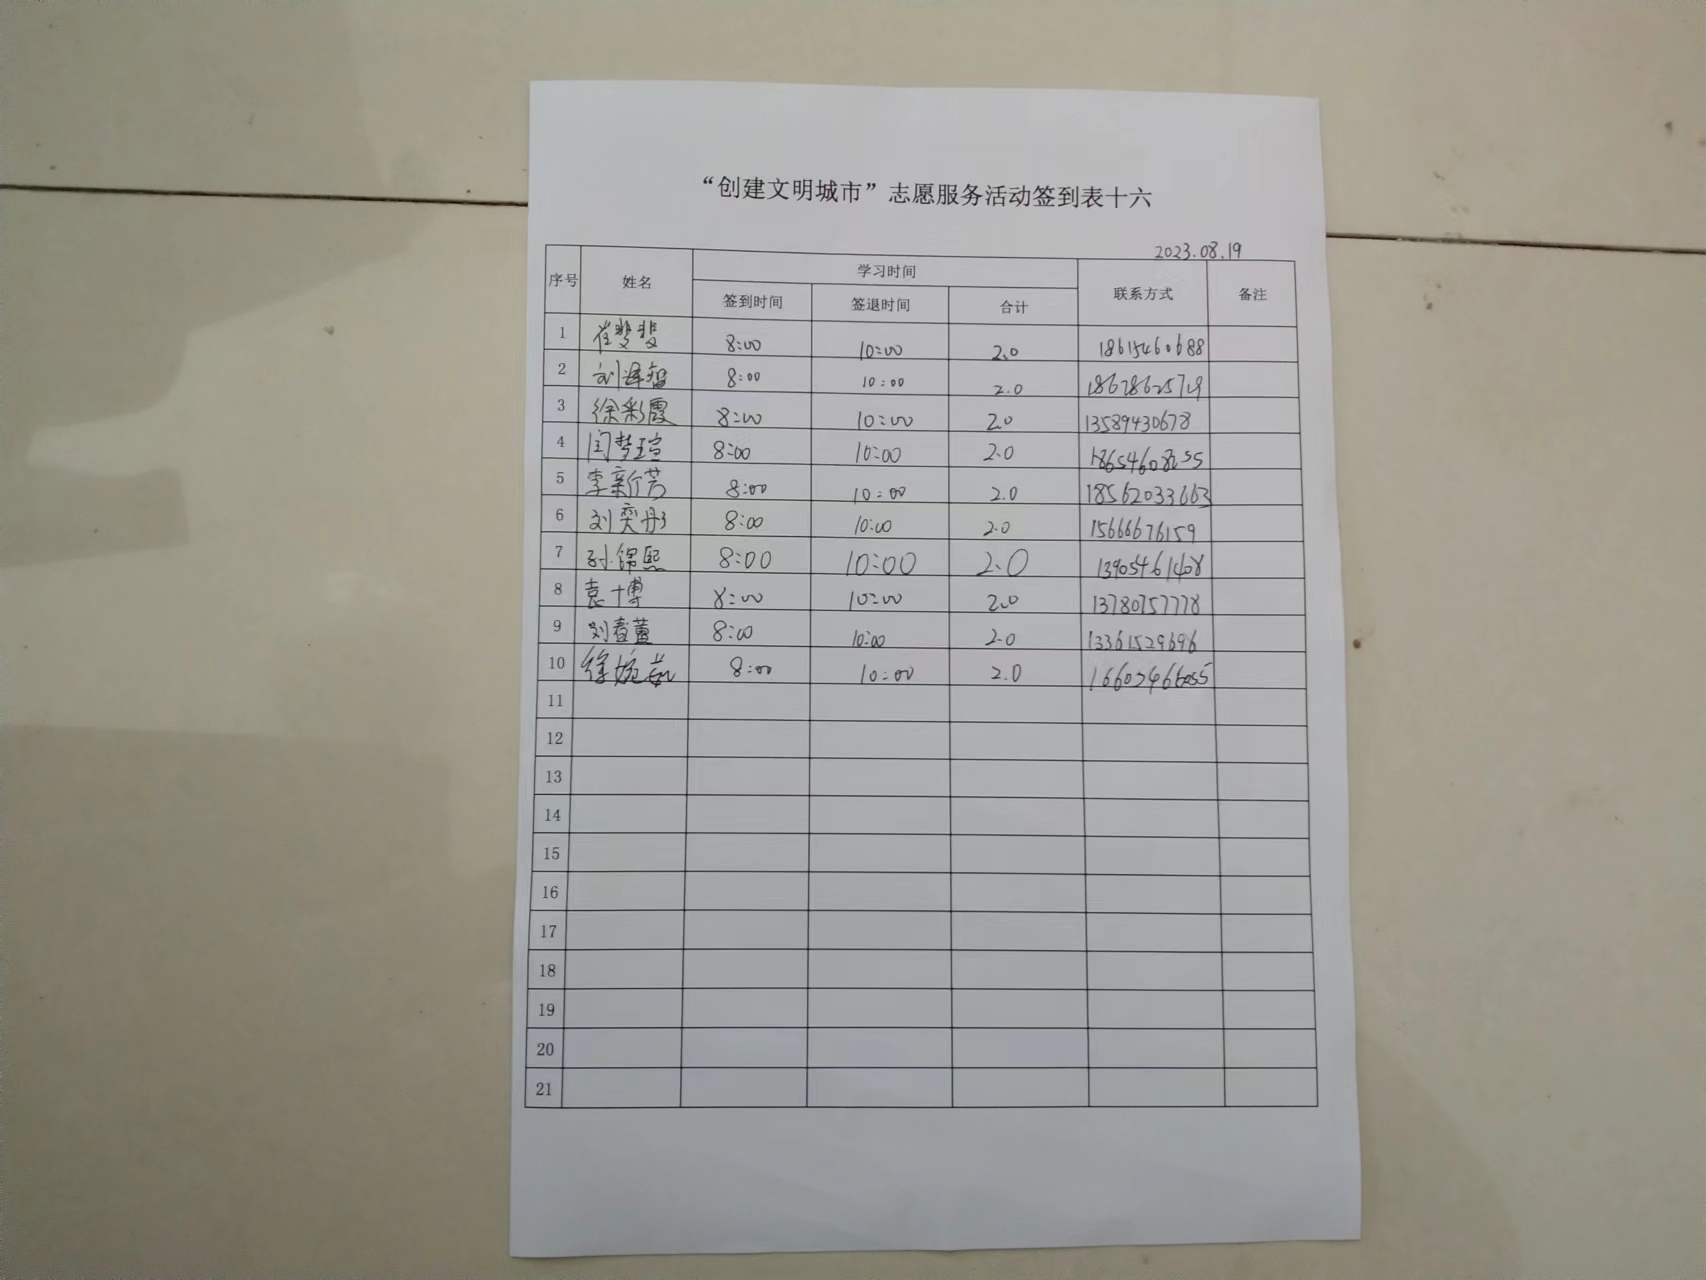 “创建文明城市”志愿服务活动签到表十六
2023.08.19
序号 姓名 学习时间 联系方式 备注
签到时间 签退时间 合计
1 崔斐斐 8:00 10:00 2.0 18615460688
2 刘泽智 8:00 10:00 2.0
3 徐彩霞 8:00 10:00 2.0 13589430678
4 闫梦瑄 8:00 10:00 2.0
5 李新芳 8:00 10:00 2.0 18562033663
6 刘奕彤 8:00 10:00 2.0 15666676159
7 孙锦熙 8:00 10:00 2.0 13905461408
8 袁十博 8:00 10:00 2.0 13780757778
9 刘 8:00 10:00 2.0 13361529696
10 徐婉茹 8:00 10:00 2.0
11
12
13
14
15
16
17
18
19
20
21